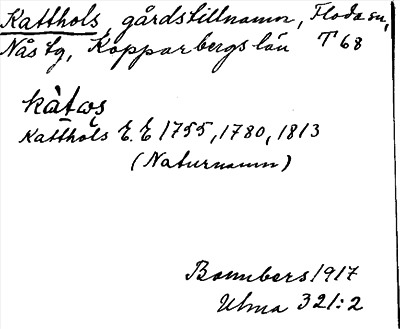 Katthols, gårdstillnamn, Floda sn,
Nås tg, Kopparbergs län T 68
kàtωs
Katthols E. E 1755, 1780, 1813
(Naturnamn)
Bannbers 1917
Ulma 321:2